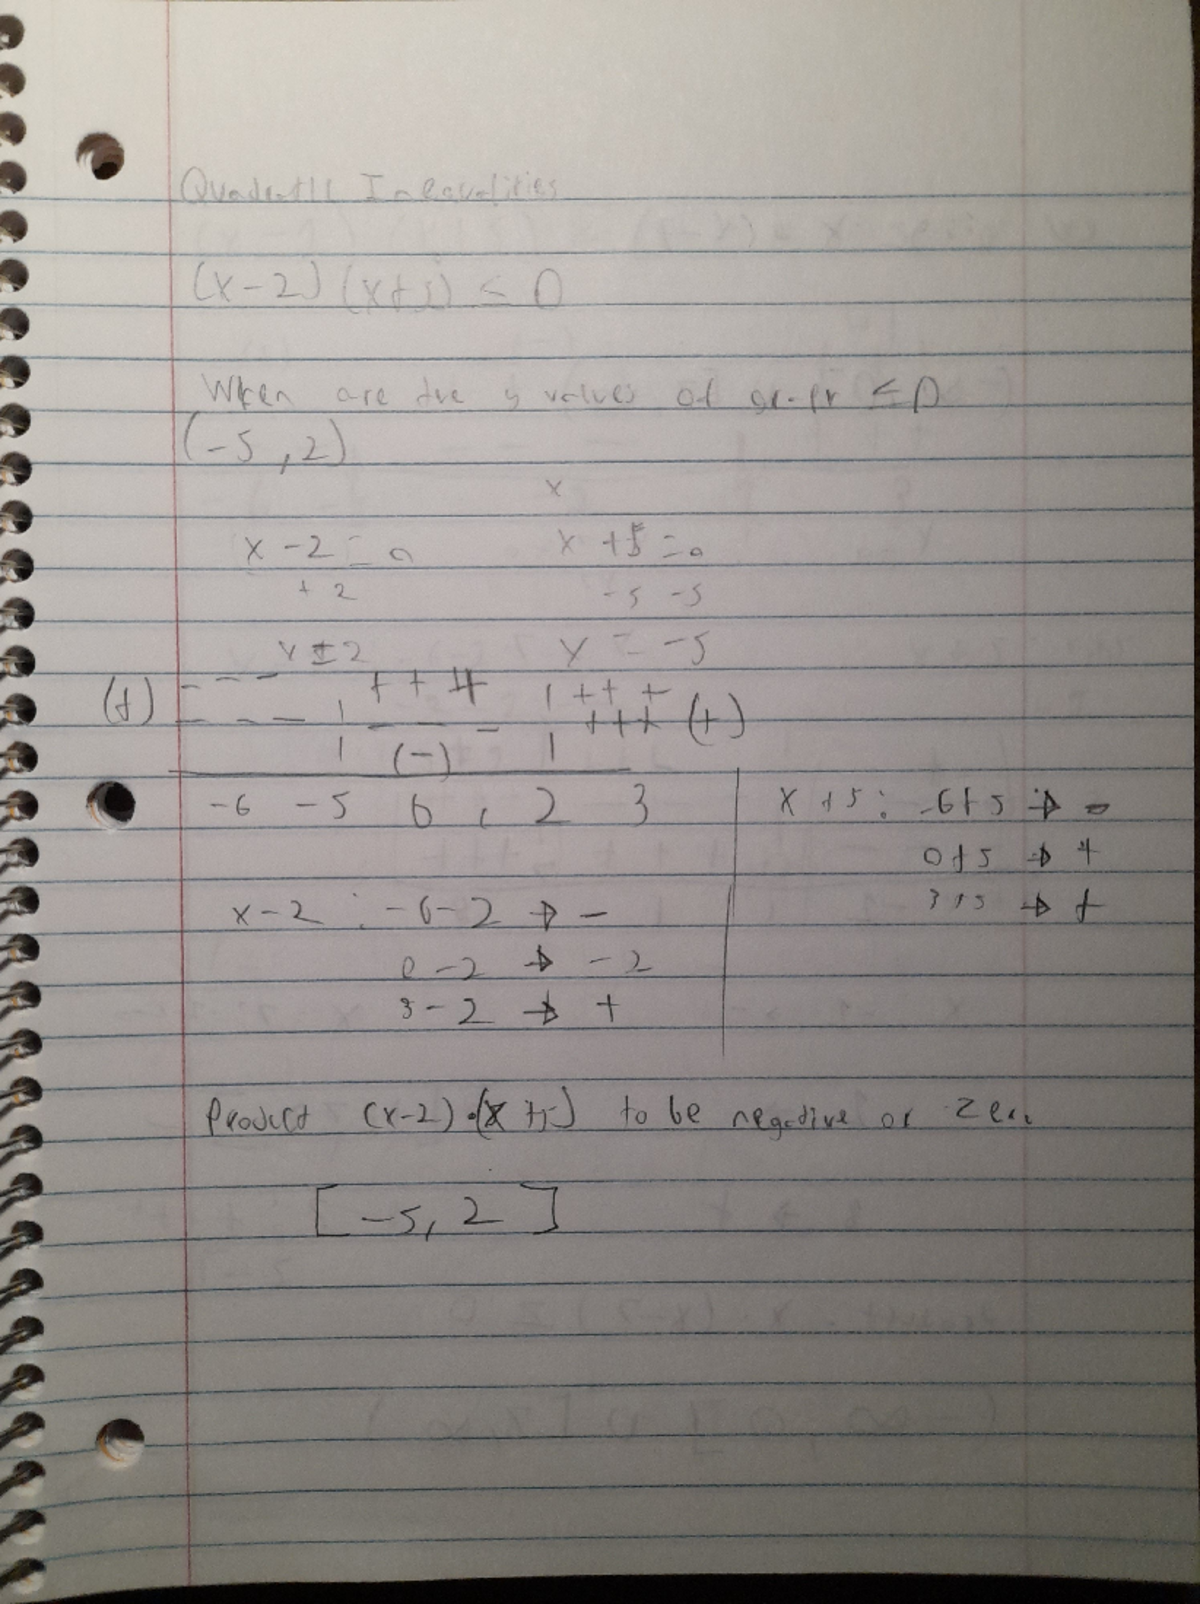 Quadratic Inequalities
(x-2) (x+5) ≤ 0
When are the y values of graph ≤ 0
(-5, 2)
x
x - 2 = 0 x + 5 = 0
+ 2 -5 -5
x = 2 y = -5
(+) - - - + + + | + + +
- - - | - - - + + + (+)
| (-) |
-6 -5 0 , 2 3
x + 5 : -6+5 → -
0+5 → +
3+5 → +
x-2 : -6-2 → -
0-2 → -2
3-2 → +
Product (x-2)·(x+5) to be negative or zero
[-5, 2]